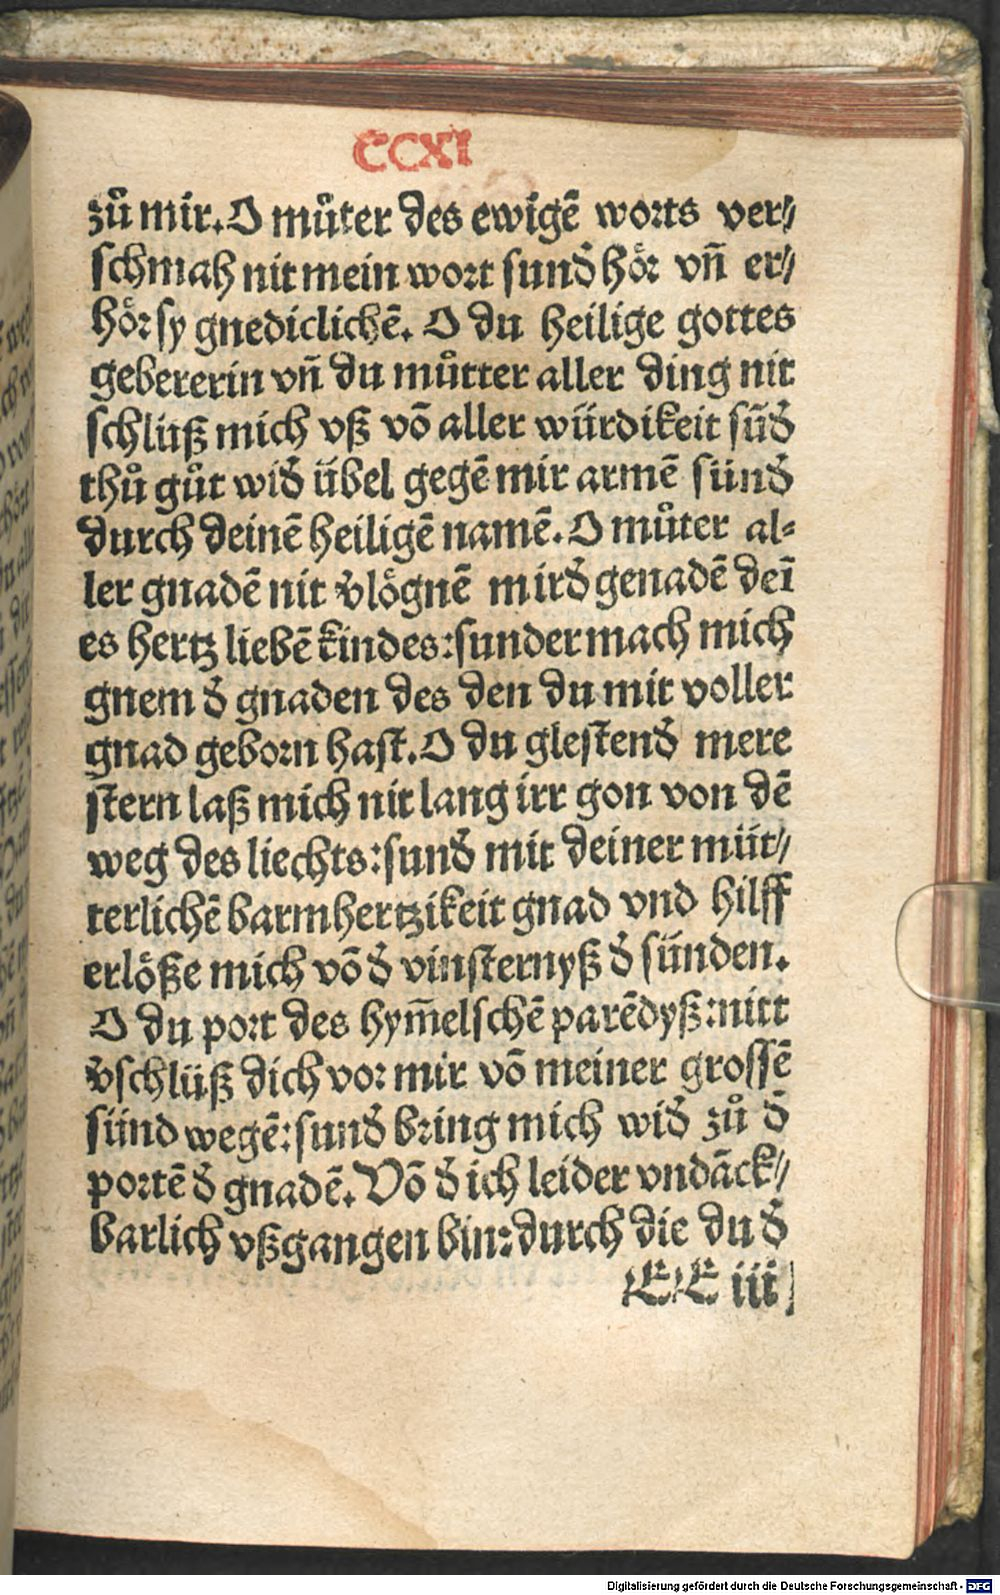 CCXI
zů mir. O můter des ewigẽ worts ver//
schmah nit mein wort sund̾ hör vñ er//
hör sy gnediclichẽ. O du heilige gottes
gebererin vñ du můtter aller ding nit
schlüß mich vß võ aller würdikeit sũd̾
thů gůt wid̾ übel gegẽ mir armẽ sünd̾
durch deinẽ heiligẽ namẽ. O můter al⸗
ler gnadẽ nit v̾lögnẽ mir d̾ genadẽ deĩ
es hertz liebẽ kindes: sunder mach mich
gnem d̾ gnaden des den du mit voller
gnad geborn hast. O du glestend̾ mere
stern laß mich nit lang irr gon von dẽ
weg des liechts: sund̾ mit deiner müt//
terlichẽ barmhertzikeit gnad vnd hilff
erlöße mich võ d̾ vinsternyß d̾ sünden.
O du port des hym̃elschẽ parẽdyß: nitt
v̾schlüß dich vor mir võ meiner grossẽ
sünd wegẽ: sund̾ bring mich wid̾ zů d̾
portẽ d̾ gnadẽ. Võ d̾ ich leider vndãck//
barlich vßgangen bin: durch die du d̾
EE iii
Digitalisierung gefördert durch die Deutsche Forschungsgemeinschaft - DFG